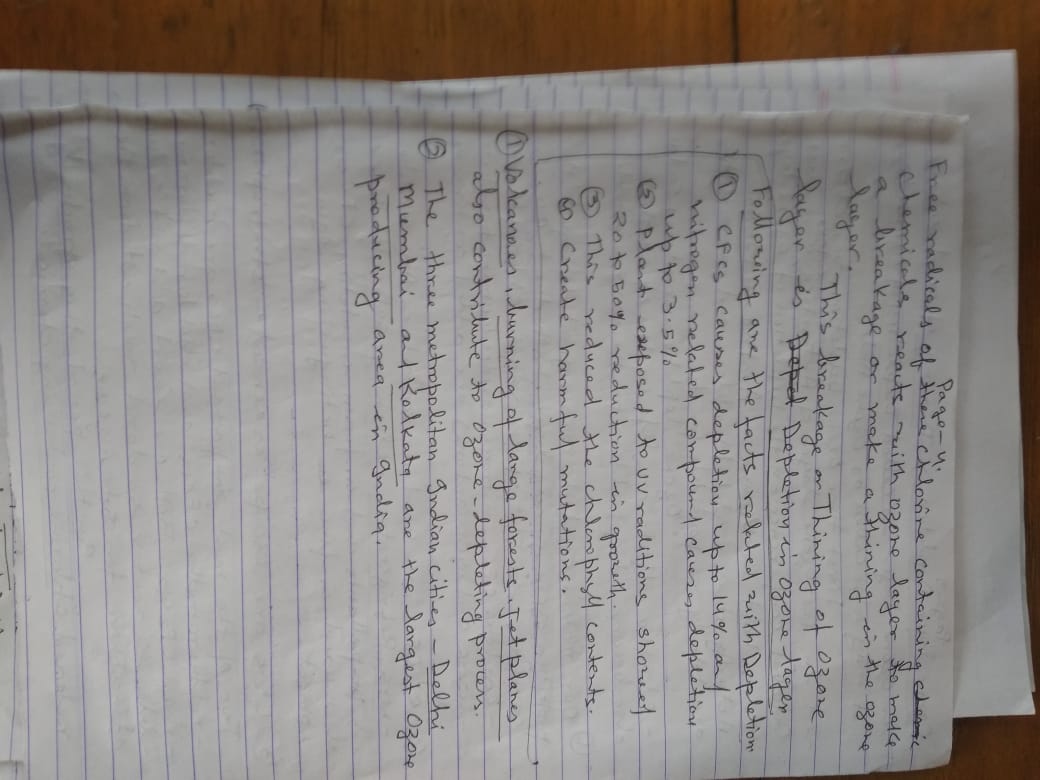 Page-4.
Free radicals of these chlorine containing
chemicals reacts with ozone layer to make
a breakage or make a thining in the ozone
layer.
This breakage or Thining of Ozone
layer is Depletion in Ozone layer
Following are the facts related with Depletion
① CFCs causes depletion up to 14% and
nitrogen related compound causes depletion
up to 3.5%
② plant exposed to UV raditions showed
20 to 50% reduction in growth.
③ This reduced the chlorophyll contents.
④ Create harmful mutations.
① Volcanoes, burning of large forests. Jet planes
also contribute to ozone-depleting process.
② The three metropolitan Indian cities - Delhi
Mumbai ad Kolkata are the largest Ozone
producing area in India.